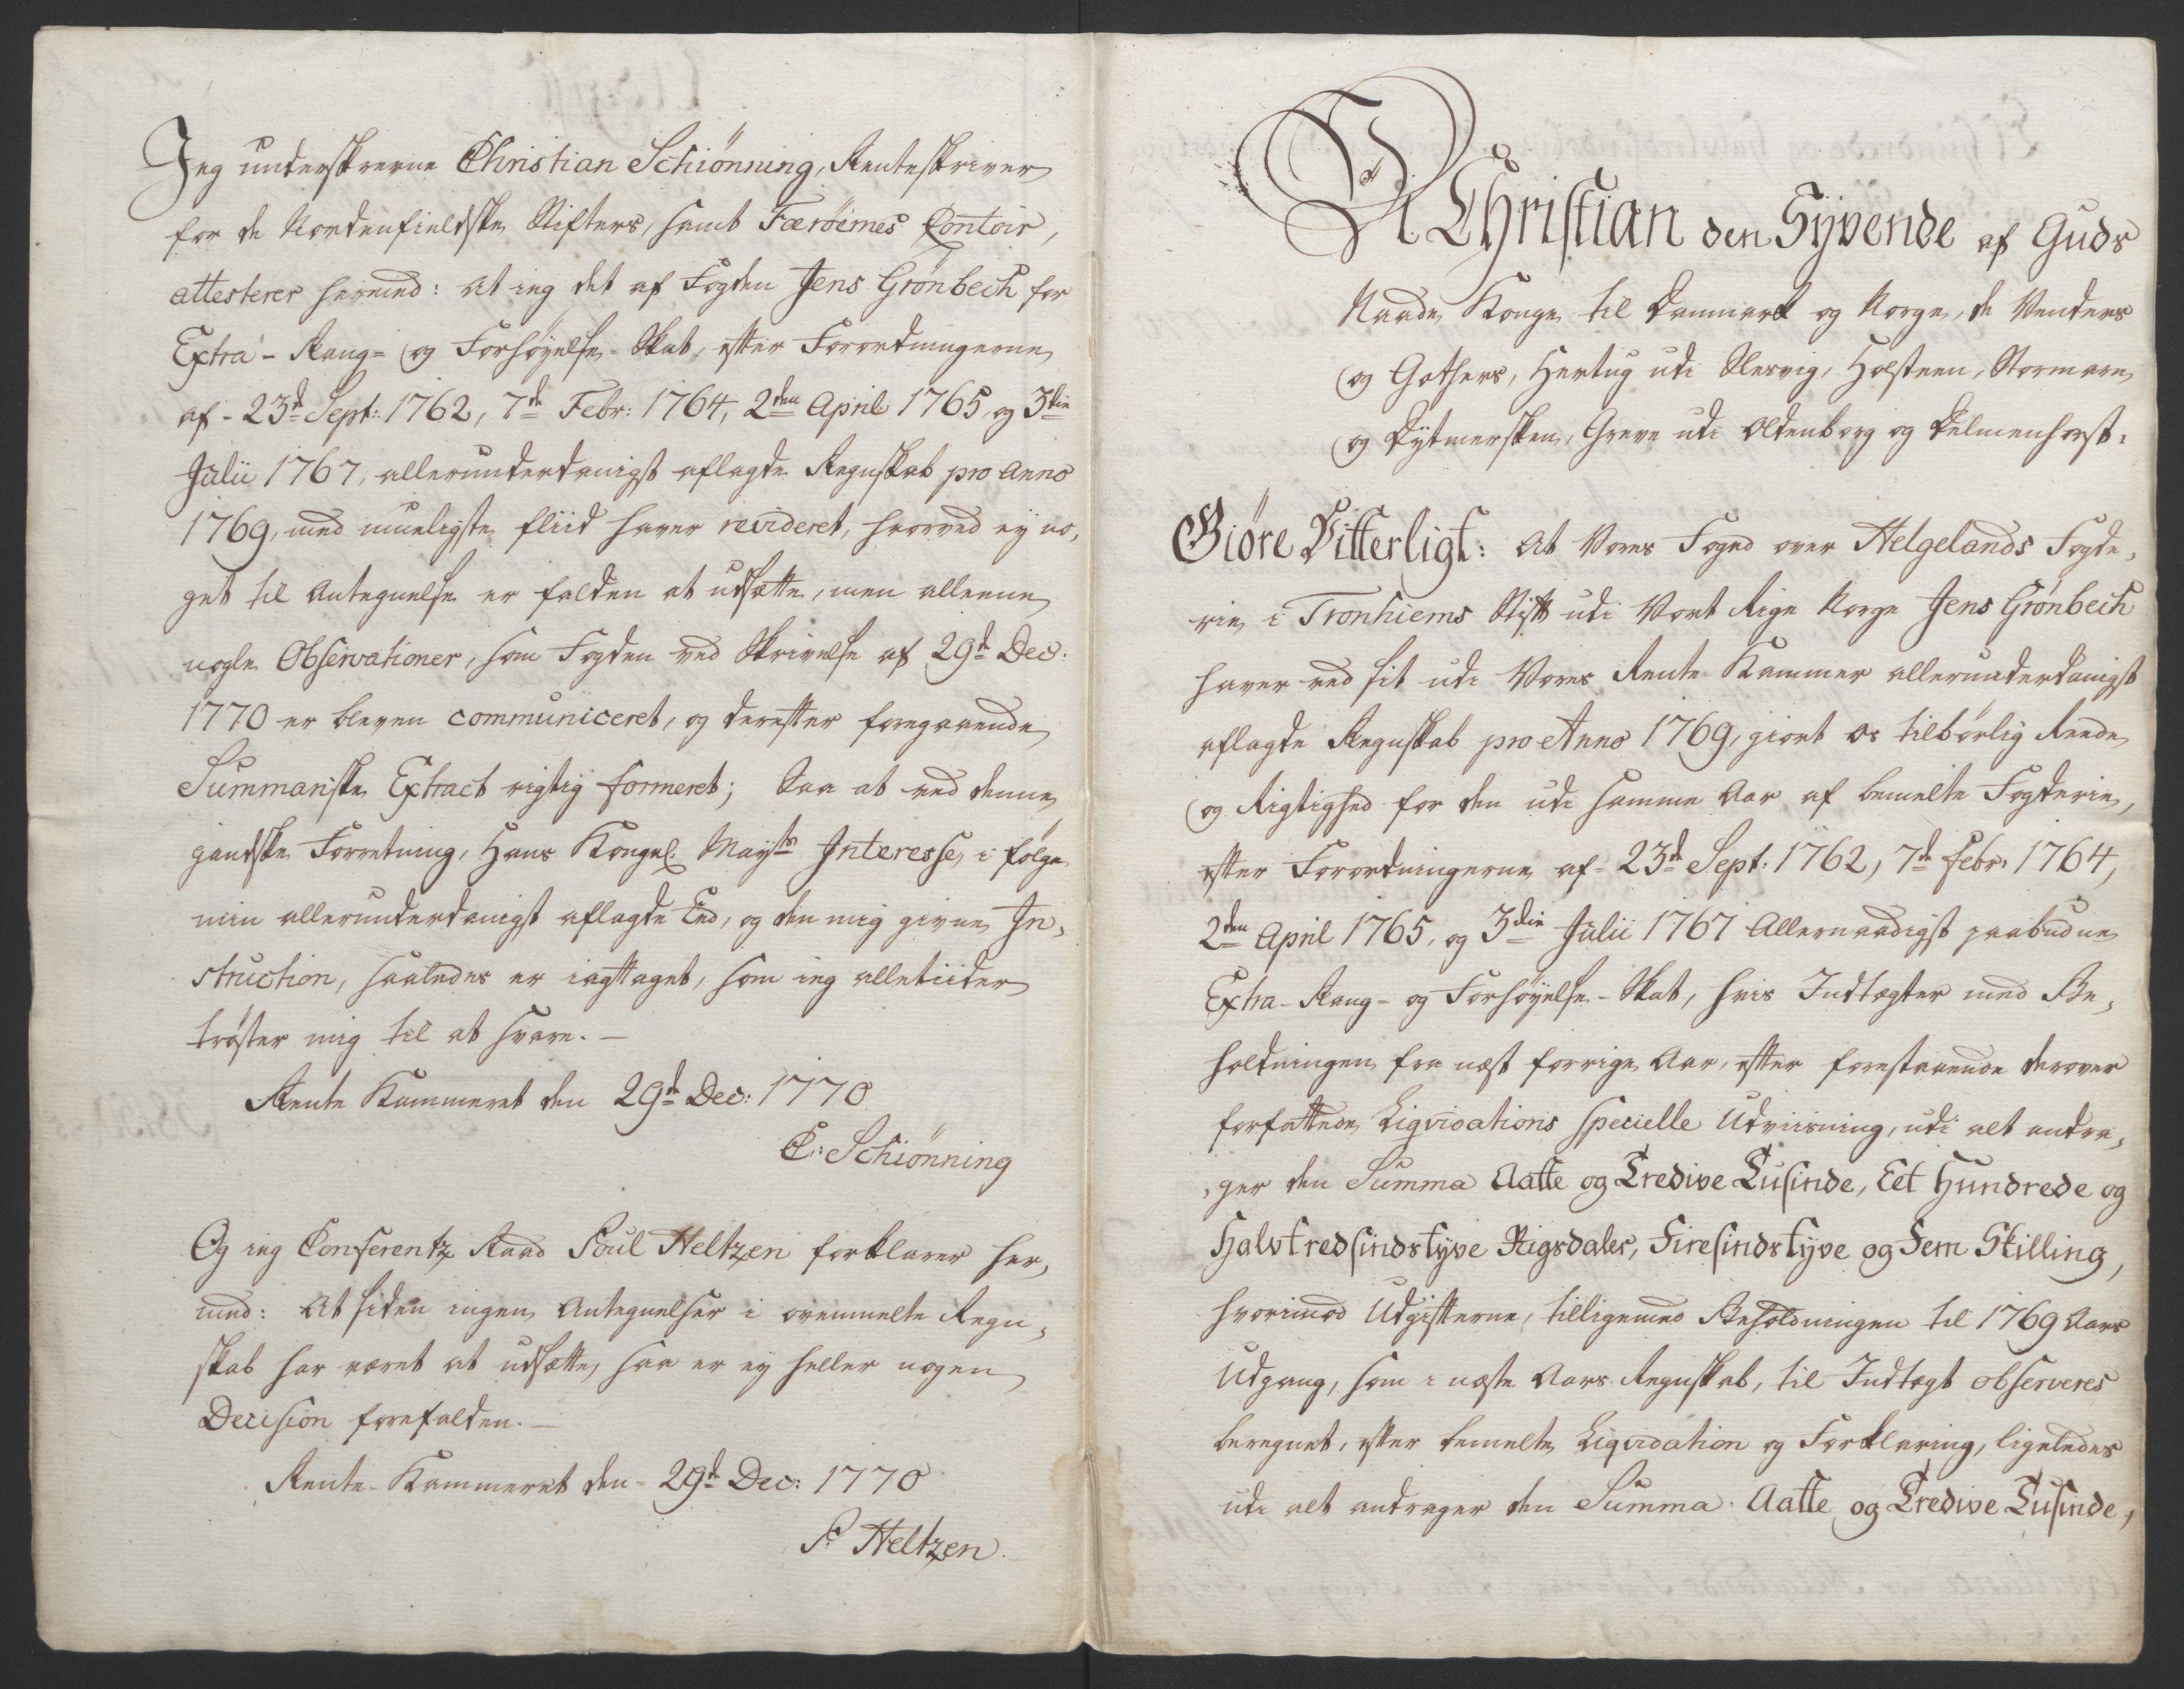 Jeg underskrevne Christian Schiönning, Renteskriver
for de Nordenfieldske Stifters, samt Færöernes Contoir,
attesterer hermed: at ieg det af Fogden Jens Grönbech for
Extra- Rang- og Forhöyelse-Skat, efter Forordningerne
af 23d Sept: 1762, 7de Febr: 1764, 2den April 1765, og 3die
Julii 1767, allerunderdanigst aflagde Regnskab pro Anno
1769, med mueligste fliid haver revideret, hvorved ey no,
get til Antegnelse er falden at udsætte, men alleene
nogle Observationer, som Fogden ved Skrivelse af 29de Dec:
1770 er bleven communiceret, og derefter foregaaende
Summariske Extract rigtig formeret; Saa at ved denne
gandske Forretning, Hans Kongel: Mayts Interesse, i fölge
min allerunderdanigst aflagde Eed, og den mig givne In,
struction, saaledes er iagttaget, som ieg alletiider
tröster mig til at svare. —
Rente Kammeret den 29de Dec: 1770
C: Schiönning
Og ieg Conferentz Raad Poul Heltzen forklarer her,
med: At siden ingen Antegnelser i ovenmelte Regn,
skab har været at udsætte, saa er ey heller nogen
Decision forefalden. —
Rente-Kammeret den 29de Dec: 1770
P. Heltzen.
Vi Christian den Syvende af Guds
Naade Konge til Danmark og Norge, de Venders
og Gothers, Hertug udi Slesvig, Holsteen, Stormarn
og Dytmersken, Greve udi Oldenborg og Delmenhorst.
Giöre Vitterligt: At Vores Foged over Helgelands Fogde,
rie i Tronhiems Stift udi Vort Rige Norge Jens Grönbech
haver ved sit udi Vores Rente Kammer allerunderdanigst
aflagde Regnskab pro Anno 1769, giort os tilbörlig Reede
og Rigtighed for den udi samme Aar af bemelte Fogderie,
efter Forordningerne af 23de Sept: 1762, 7de Febr: 1764,
2den April 1765, og 3die Julii 1767 Allernaadigst paabudne
Extra- Rang- og Forhöyelse-Skat, hvis Indtægter med Be,
holdningen fra næst forrige Aar, efter forestaaende derover
forfattede Liqvidations specielle Udviisning, udi alt andra,
,ger den Summa Aatte og Tredive Tusinde, Eet Hundrede og
Halvtredsindstyve Rigsdaler, Firesindstyve og Fem Skilling,
hvorimod Udgifterne, tilligemed Beholdningen til 1769 Aars
Udgang, som i næste Aars Regnskab, til Indtægt observeres
beregnet, efter bemelte Liqvidation og Forklaring, ligeledes
udi alt andrager den Summa Aatte og Tredive Tusinde,